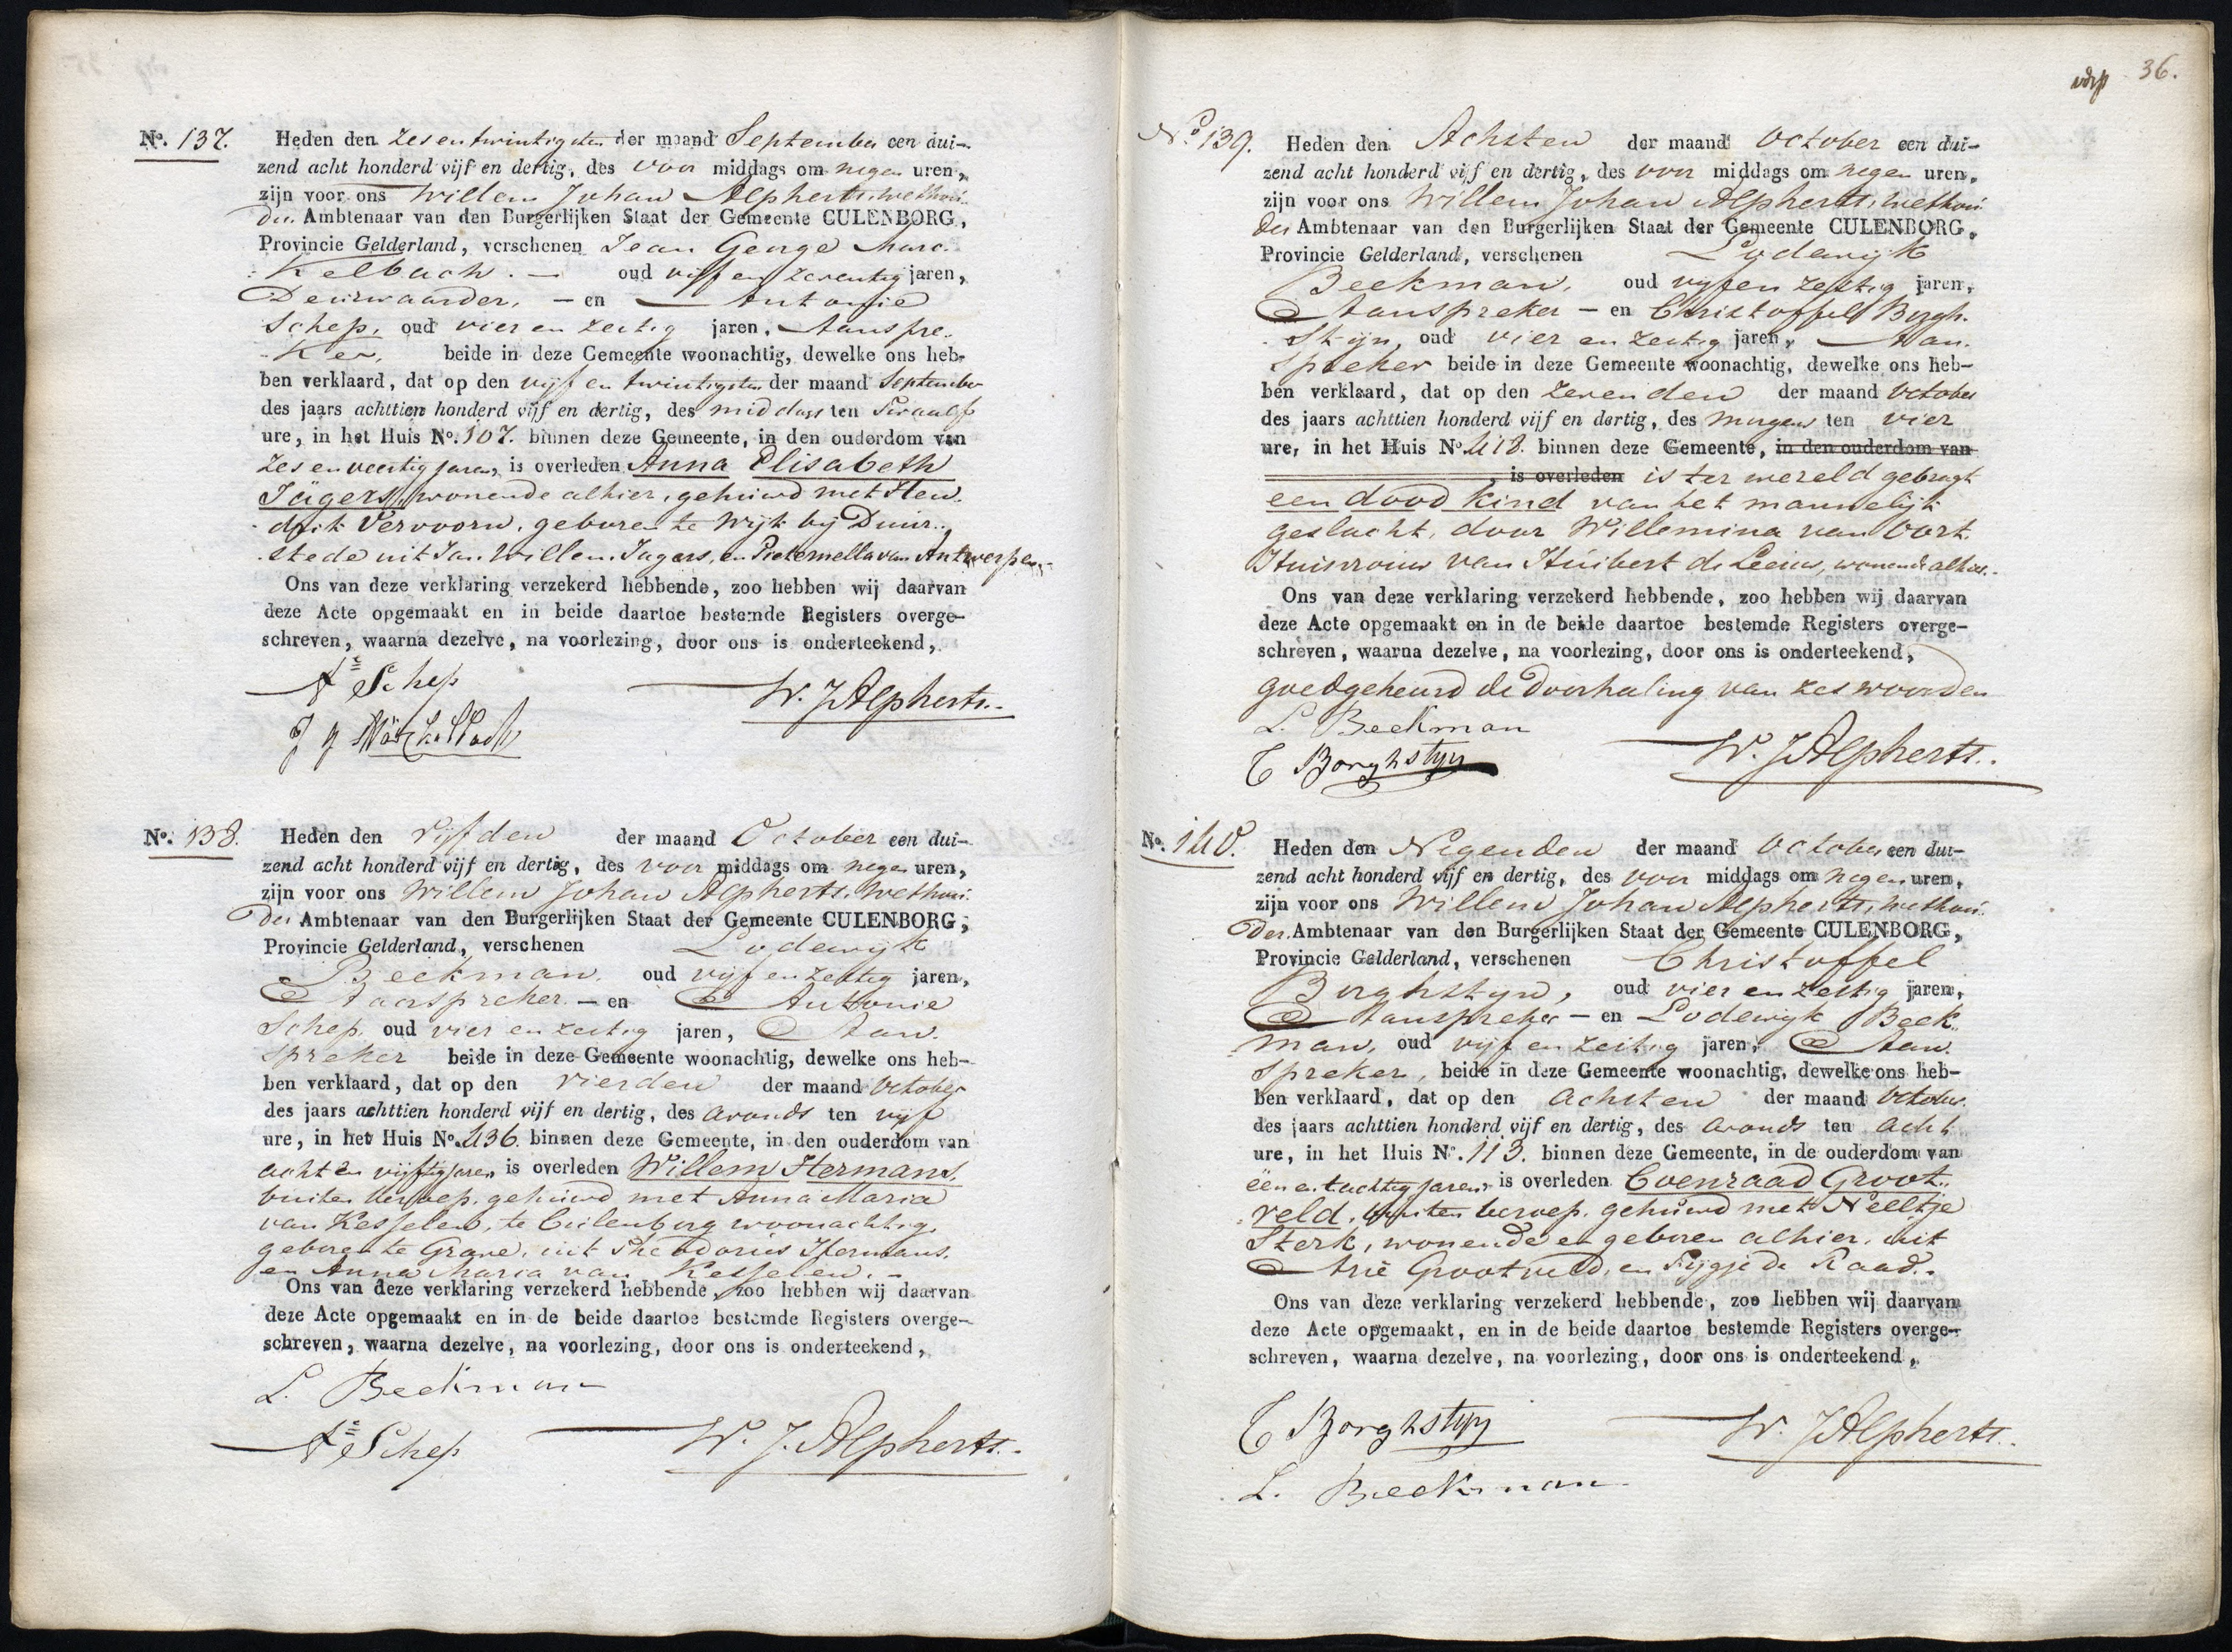 No. 137. Heden den zes en twintigsten der maand September een dui-
zend acht honderd vijf en dertig, des voor middags om negen uren,
zijn voor ons Willem Johan Alpherts, wethou-
der Ambtenaar van den Burgerlijken Staat der Gemeente CULENBORG,
Provincie Gelderland, verschenen Jean George Marc-
Kelbach. — oud vijf en zeventig jaren,
Deurwaarder, — en Antonie
Schep, oud vier en zestig jaren, Aanspre-
ker, beide in deze Gemeente woonachtig, dewelke ons heb-
ben verklaard, dat op den vijf en twintigsten der maand September
des jaars achttien honderd vijf en dertig, des middags ten twaalf
ure, in het Huis No. 107. binnen deze Gemeente, in den ouderdom van
zes en veertig jaren, is overleden Anna Elisabeth
Jägers, wonende alhier, gehuwd met Hen-
drik Vervoorn, geboren te Wijk bij Duur-
stede uit Jan Willem Jagers, en Pieternella van Antwerpen.
Ons van deze verklaring verzekerd hebbende, zoo hebben wij daarvan
deze Acte opgemaakt en in beide daartoe bestemde Registers overge-
schreven, waarna dezelve, na voorlezing, door ons is onderteekend,
As Schep
W. J. Alpherts.
J G Märkelbach
No. 138. Heden den vijfden der maand October een dui-
zend acht honderd vijf en dertig, des voor middags om negen uren,
zijn voor ons Willem Johan Alpherts, Wethou-
der Ambtenaar van den Burgerlijken Staat der Gemeente CULENBORG,
Provincie Gelderland, verschenen Lodewijk
Beekman, oud vijf en zestig jaren,
Aanspreker — en Anthonie
Schep, oud vier en zestig jaren, Aan-
spreker beide in deze Gemeente woonachtig, dewelke ons heb-
ben verklaard, dat op den vierden der maand October
des jaars achttien honderd vijf en dertig, des avonds ten vijf
ure, in het Huis No. 436 binnen deze Gemeente, in den ouderdom van
acht en vijftig jaren is overleden Willem Hermans,
buiten beroep, gehuwd met Anna Maria
van Kesselen, te Culenborg woonachtig,
geboren te Grave, uit Theodorus Hermans,
en Anna Maria van Kesselen. —
Ons van deze verklaring verzekerd hebbende, zoo hebben wij daarvan
deze Acte opgemaakt en in de beide daartoe bestemde Registers overge-
schreven, waarna dezelve, na voorlezing, door ons is onderteekend,
L. Beekman
As Schep
W. J. Alpherts.
36.
No. 139. Heden den Achsten der maand October een dui-
zend acht honderd vijf en dertig, des voor middags om negen uren,
zijn voor ons Willem Johan Alpherts, wethou-
der Ambtenaar van den Burgerlijken Staat der Gemeente CULENBORG,
Provincie Gelderland, verschenen Lodewijk
Beekman, oud vijf en zestig jaren,
Aanspreker — en Christoffel Borgh-
stijn, oud vier en zestig jaren, Aan-
spreker beide in deze Gemeente woonachtig, dewelke ons heb-
ben verklaard, dat op den zevenden der maand October
des jaars achttien honderd vijf en dertig, des morgens ten vier
ure, in het Huis No. 418. binnen deze Gemeente, in den ouderdom van
is overleden is ter wereld gebragt
een dood kind van het mannelijk
geslacht, door Willemina van Oort.
Huisvrouw van Huibert de Leeuw, wonende alhier.
Ons van deze verklaring verzekerd hebbende, zoo hebben wij daarvan
deze Acte opgemaakt en in de beide daartoe bestemde Registers overge-
schreven, waarna dezelve, na voorlezing, door ons is onderteekend,
goedgekeurd de doorhaling van zes woorden
L. Beekman
C Borghstyn
W. J. Alpherts.
No. 140. Heden den Negenden der maand October een dui-
zend acht honderd vijf en dertig, des voor middags om negen uren,
zijn voor ons Willem Johan Alpherts, wethou-
der Ambtenaar van den Burgerlijken Staat der Gemeente CULENBORG,
Provincie Gelderland, verschenen Christoffel
Borghstyn, oud vier en zestig jaren,
Aanspreker — en Lodewijk Beek-
man, oud vijf en zestig jaren, Aan-
spreker, beide in deze Gemeente woonachtig, dewelke ons heb-
ben verklaard, dat op den achsten der maand October
des jaars achttien honderd vijf en dertig, des avonds ten acht
ure, in het Huis No. 113. binnen deze Gemeente, in de ouderdom van
één en tachtig jaren is overleden Coenraad Groot-
veld, buiten beroep, gehuwd met Neeltje
Sterk, wonende en geboren alhier, uit
Arie Grootveld, en Sijgje de Raad.
Ons van deze verklaring verzekerd hebbende, zoo hebben wij daarvan
deze Acte opgemaakt, en in de beide daartoe bestemde Registers overge-
schreven, waarna dezelve, na voorlezing, door ons is onderteekend,
C Borghstyn
W. J. Alpherts.
L. Beekman